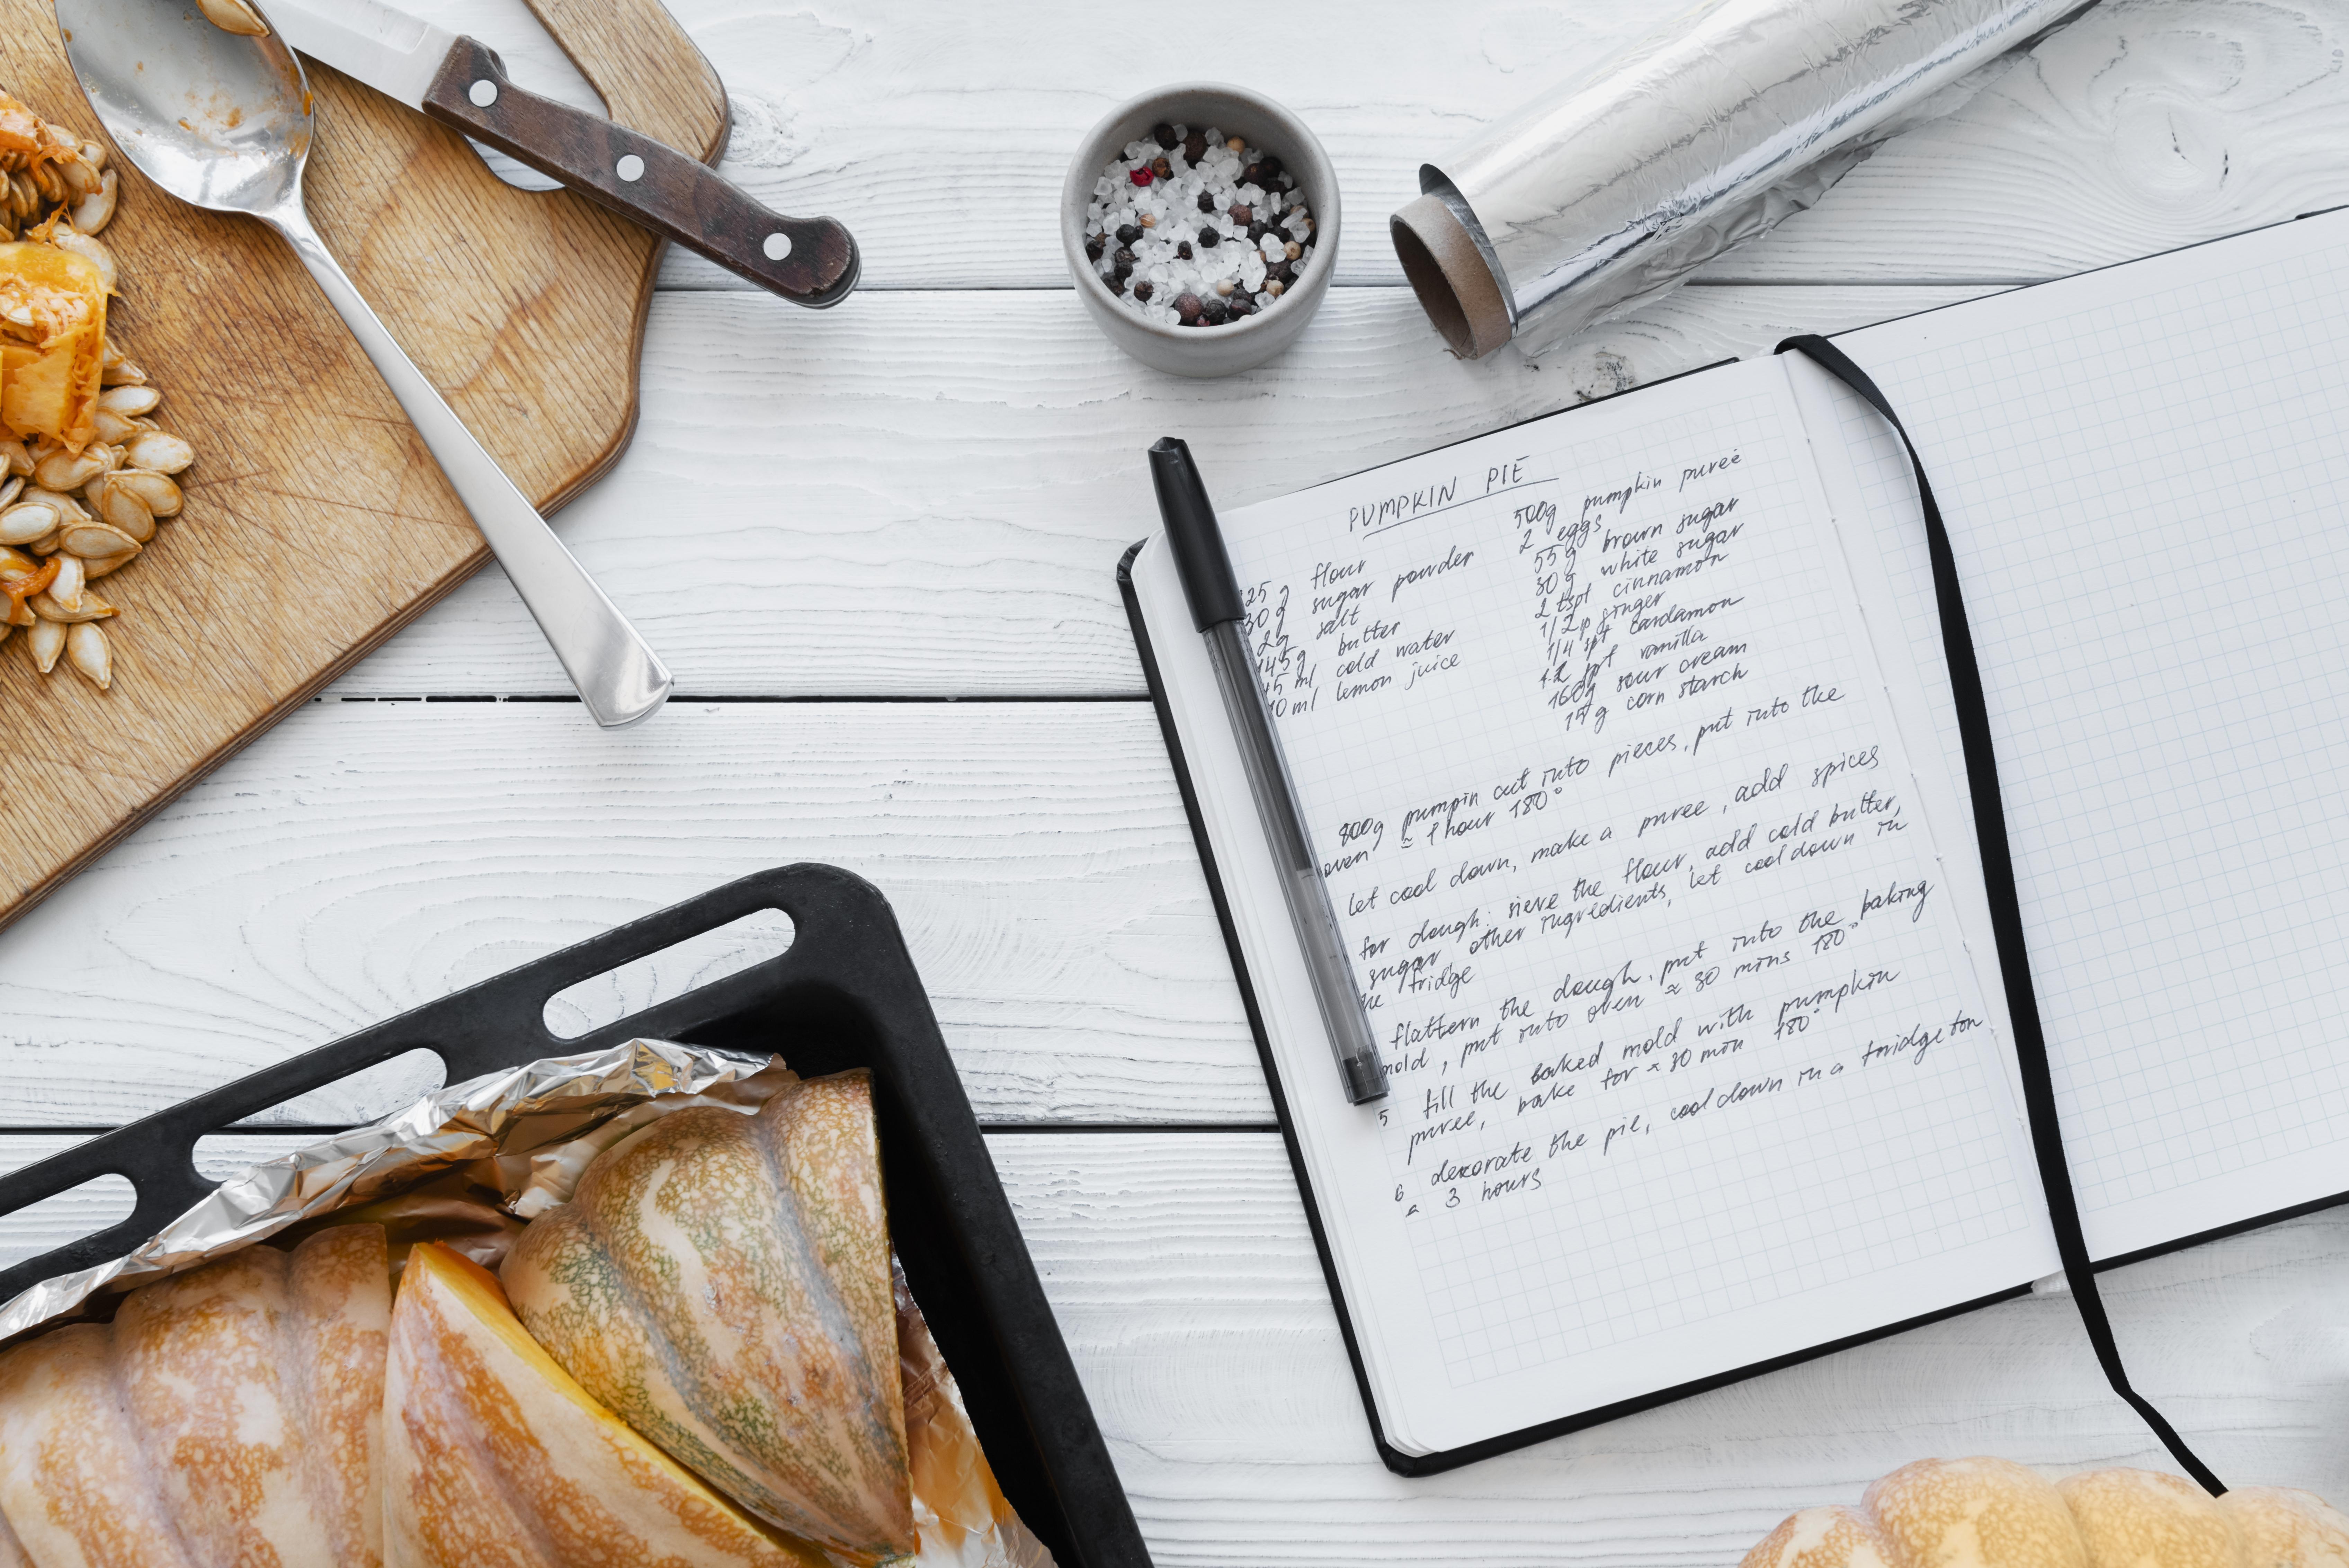 PUMPKIN PIE
25 g flour
30 g sugar powder
2g salt
145 g butter
45 ml cold water
10 ml lemon juice
500g pumpkin pureé
2 eggs
55 g brown sugar
30 g white sugar
2 tspt cinnamon
1/2 p ginger
1/4 spt cardamon
spt vanilla
160g sour cream
15 g corn starch
800g pumpin cut into pieces, put into the
oven ≈ 1 hour 180°
let cool down, make a puree, add spices
for dough: sieve the flour, add cold butter,
sugar, other ingredients, let cool down in
he fridge
flattern the dough, put into the baking
mold, put into oven ≈ 30 mins 180°
5 fill the baked mold with pumpkin
puree, bake for ≈ 30 min 180°
6 decorate the pie, cool down in a fridge for
a 3 hours